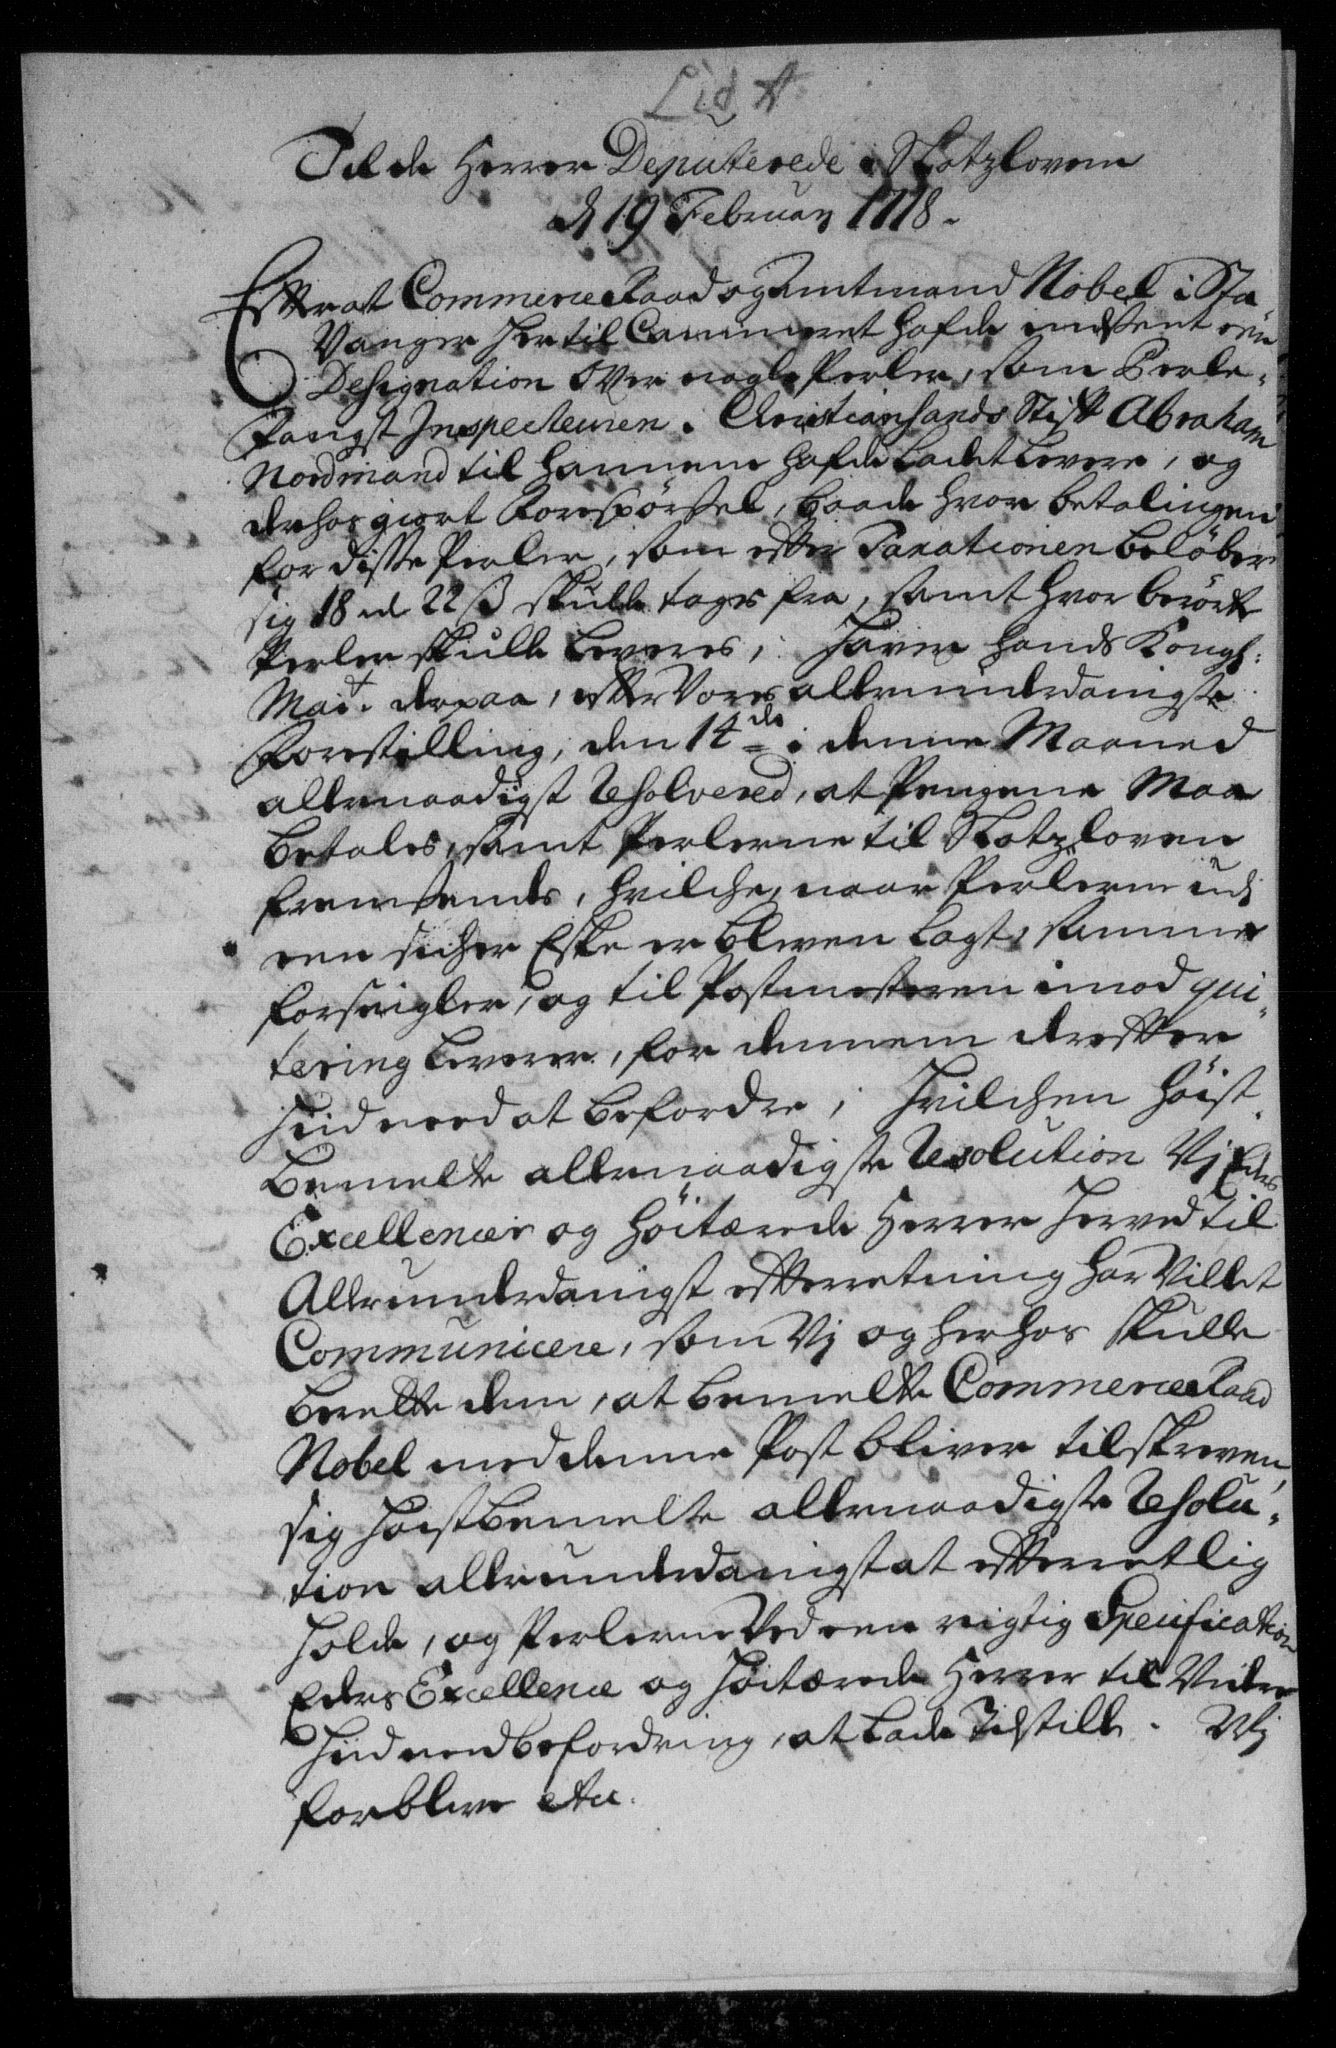 Lid A
Til de Herrer Deputerede i Slotzloven
d 19 Februarij 1718.
Efter at CommerceRaad og Amtmand Nobel i Sta
Vanger her til Cammeret hafde indsent een
Designation over nogle Perler, som Perle-
Fangst Inspecteuren i Christiansands Stift Abraham
Nordmand til hannem hafde ladet levere, og
derhos giort Forespørsel, baade hvor betalingen
for disse Perler, som efter Taxationen beløber
sig 18 rd 22 ß skulle tages fra, samt hvor berørte
Perler skulle leveres, Haver hands Kongl:
Mait. derpaa, efter Vores allerunderdanigste
Forestilling, den 14de i denne Maaned
allernaadigst Resolvered, at Pengene Maa
betales, samt Perlerne til Slotzloven
fremsendes, hvilche, naar Perlerne udj
een sicher Eske er bleven lagt, samme
forseigler, og til Postmesteren imod qui-
tering leverer, for dennem derefter
hid need at befordre, Hvilchen høist-
bemelte allernaadigste Resolution Vj Eders
Excellencer og høitærede Herrer herved til
Allerunderdanigst efterretning har Villet
Communicere, som Vj og herhos skulle
berette dem, at bemelte CommerceRaad
Nobel med denne Post bliver tilskreven,
sig høistbemelte allernaadigste Resolu-
tion allerunderdanigst at efterretlig
holde, og Perlerne Ved een rigtig Specification
Eders Excellence og høitærede Herrer til Videre
hid need befordring, at lade Tilstille. Vj
forblive etc.